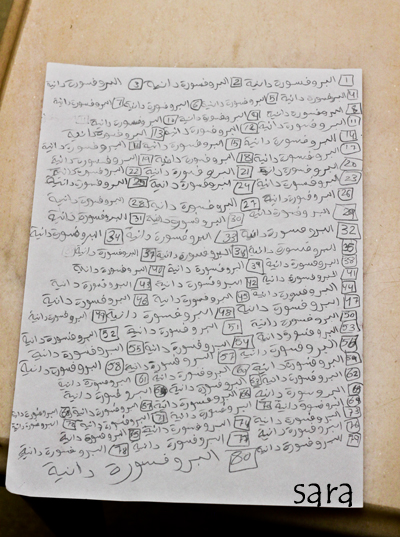 1 البروفسورة دانية 2 البروفسورة دانية 3 البروفسورة دانية
4 البروفسورة دانية 5 البروفسورة دانية 6 البروفسورة دانية 7 البروفسورة دانية
8 البروفسورة دانية 9 البروفسورة دانية 10 البروفسورة دانية
11 البروفسورة دانية 12 البروفسورة دانية 13 البروفسورة دانية
14 البروفسورة دانية 15 البروفسورة دانية 16 البروفسورة دانية
17 البروفسورة دانية 18 البروفسورة دانية 19 البروفسورة دانية
20 البروفسورة دانية 21 البروفسورة دانية 22 البروفسورة دانية
23 البروفسورة دانية 24 البروفسورة دانية 25 البروفسورة دانية
26 البروفسورة دانية 27 البروفسورة دانية 28 البروفسورة دانية
29 البروفسورة دانية 30 البروفسورة دانية 31 البروفسورة دانية
32 البروفسورة دانية 33 البروفسورة دانية 34 البروفسورة دانية
35 البروفسورة دانية 36 البروفسورة دانية 37 البروفسورة دانية
38 البروفسورة دانية 39 البروفسورة دانية 40 البروفسورة دانية
41 البروفسورة دانية 42 البروفسورة دانية 43 البروفسورة دانية
44 البروفسورة دانية 45 البروفسورة دانية 46 البروفسورة دانية
47 البروفسورة دانية 48 البروفسورة دانية 49 البروفسورة دانية
50 البروفسورة دانية 51 البروفسورة دانية 52 البروفسورة دانية
53 البروفسورة دانية 54 البروفسورة دانية 55 البروفسورة دانية
56 البروفسورة دانية 57 البروفسورة دانية 58 البروفسورة دانية
59 البروفسورة دانية 60 البروفسورة دانية 61 البروفسورة دانية
62 البروفسورة دانية 63 البروفسورة دانية البروفسورة دانية
البروفسورة دانية 66 البروفسورة دانية 67 البروفسورة دانية 68 البروفسورة دانية
69 البروفسورة دانية 70 البروفسورة دانية 71 البروفسورة دانية 72 البروفسورة دانية
73 البروفسورة دانية 74 البروفسورة دانية 75 البروفسورة دانية
76 البروفسورة دانية 77 البروفسورة دانية 78 البروفسورة دانية
79 البروفسورة دانية
80 البروفسورة دانية
sara